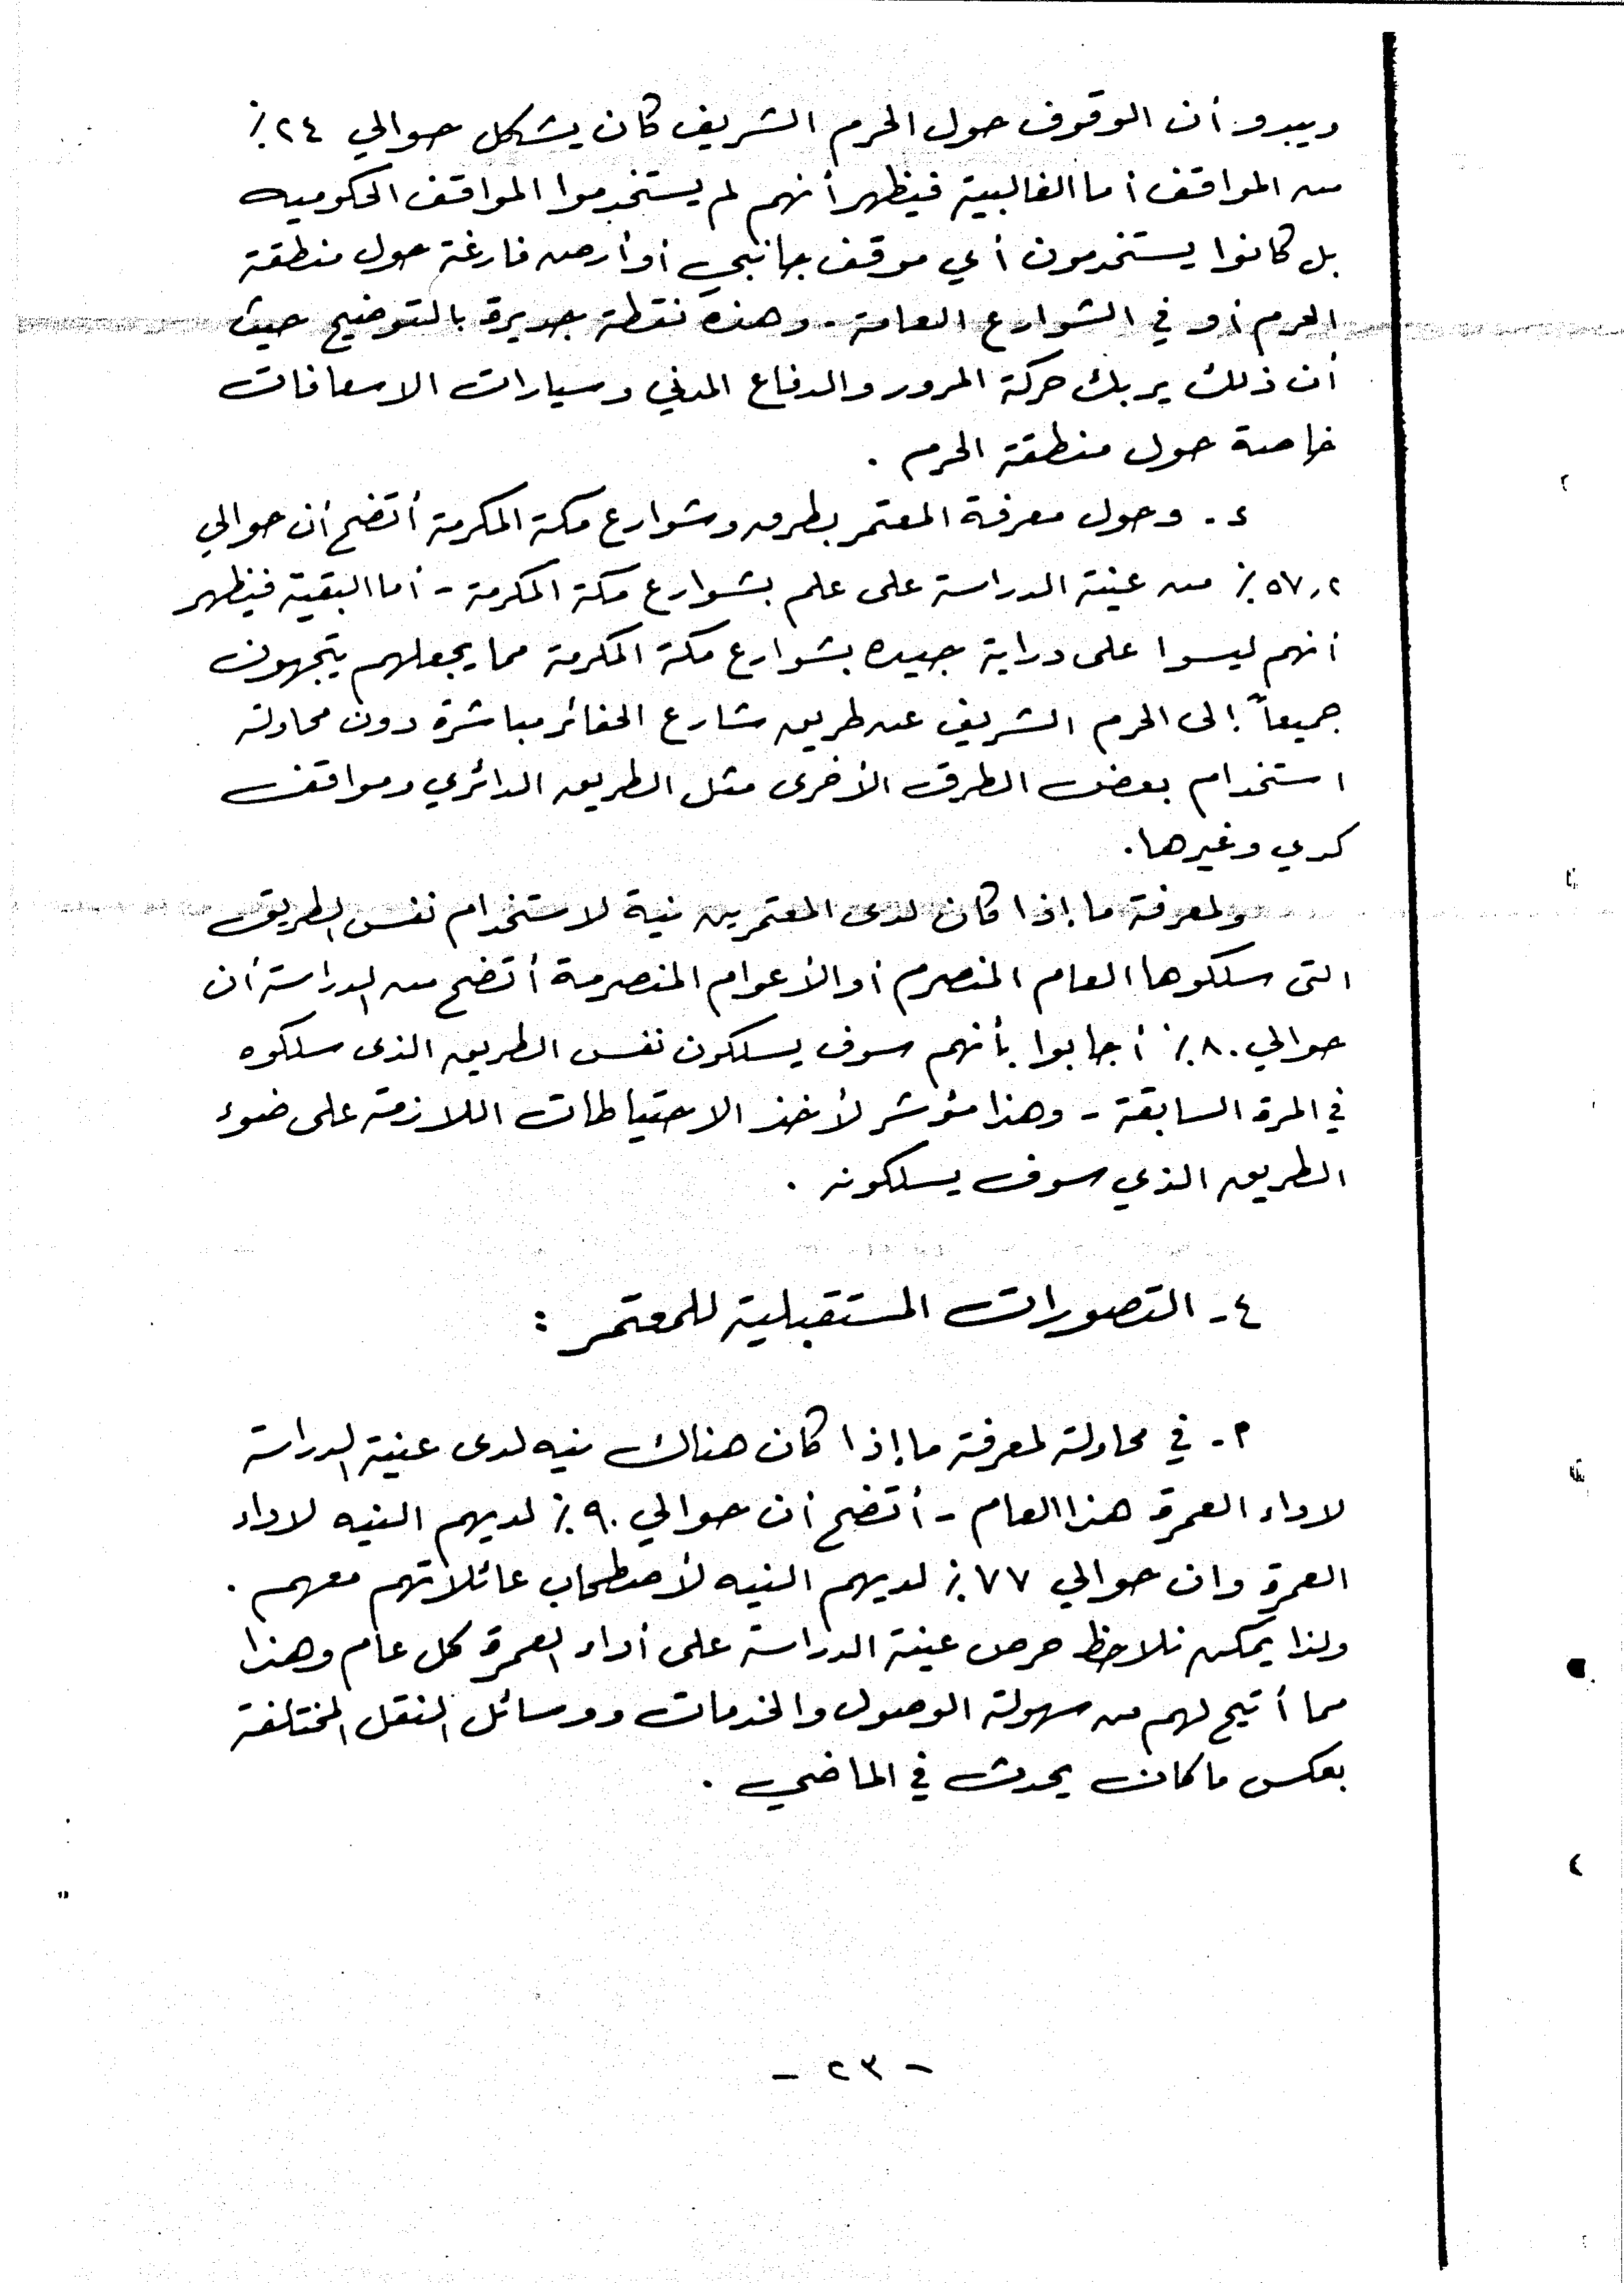 ويبدو أن الوقوف حول الحرم الشريف كان يشكل حوالي ٢٤٪
من المواقف أما الغالبية فيظهر أنهم لم يستخدموا المواقف الحكوميه
بل كانوا يستخدمون أي موقف جانبي أو أرض فارغة حول منطقة
الحرم أو في الشوارع العامة - وهذه نقطة جديرة بالتوضيح حيث
أن ذلك يربك حركة المرور والدفاع المدني وسيارات الاسعافات
خاصة حول منطقة الحرم .
٤- وحول معرفة المعتمر بطرق وشوارع مكة المكرمة أتضح أن حوالي
٥٧,٢٪ من عينة الدراسة على علم بشوارع مكة المكرمة - أما البقية فيظهر
أنهم ليسوا على دراية جيده بشوارع مكة المكرمة مما يجعلهم يتجهون
جميعاً إلى الحرم الشريف عن طريق شارع الحفائر مباشرة دون محاولة
استخدام بعض الطرق الأخرى مثل الطريق الدائري ومواقف
كدي وغيرها.
ولمعرفة ما إذا كان لدى المعتمرين نية لاستخدام نفس الطريق
التى سلكوها العام المنصرم أو الأعوام المنصرمة أتضح من الدراسة أن
حوالي ٨٠٪ أجابوا بأنهم سوف يسلكون نفس الطريق الذى سلكوه
في المرة السابقة - وهذا مؤشر لأخذ الاحتياطات اللازمة على ضوء
الطريق الذي سوف يسلكونه .
٤- التصورات المستقبلية للمعتمر :
٢- في محاولة لمعرفة ما إذا كان هناك نيه لدى عينة الدراسة
لاداء العمرة هذا العام - أتضح أن حوالي ٩٠٪ لديهم النيه لاداء
العمرة وان حوالي ٧٧٪ لديهم النيه لأصطحاب عائلاتهم معهم .
ولذا يمكن نلاحظ حرص عينة الدراسة على أداء العمرة كل عام وهذا
مما أتيح لهم من سهولة الوصول والخدمات ووسائل النقل المختلفة
بعكس ما كان يحدث في الماضي .
- ٢٣ -